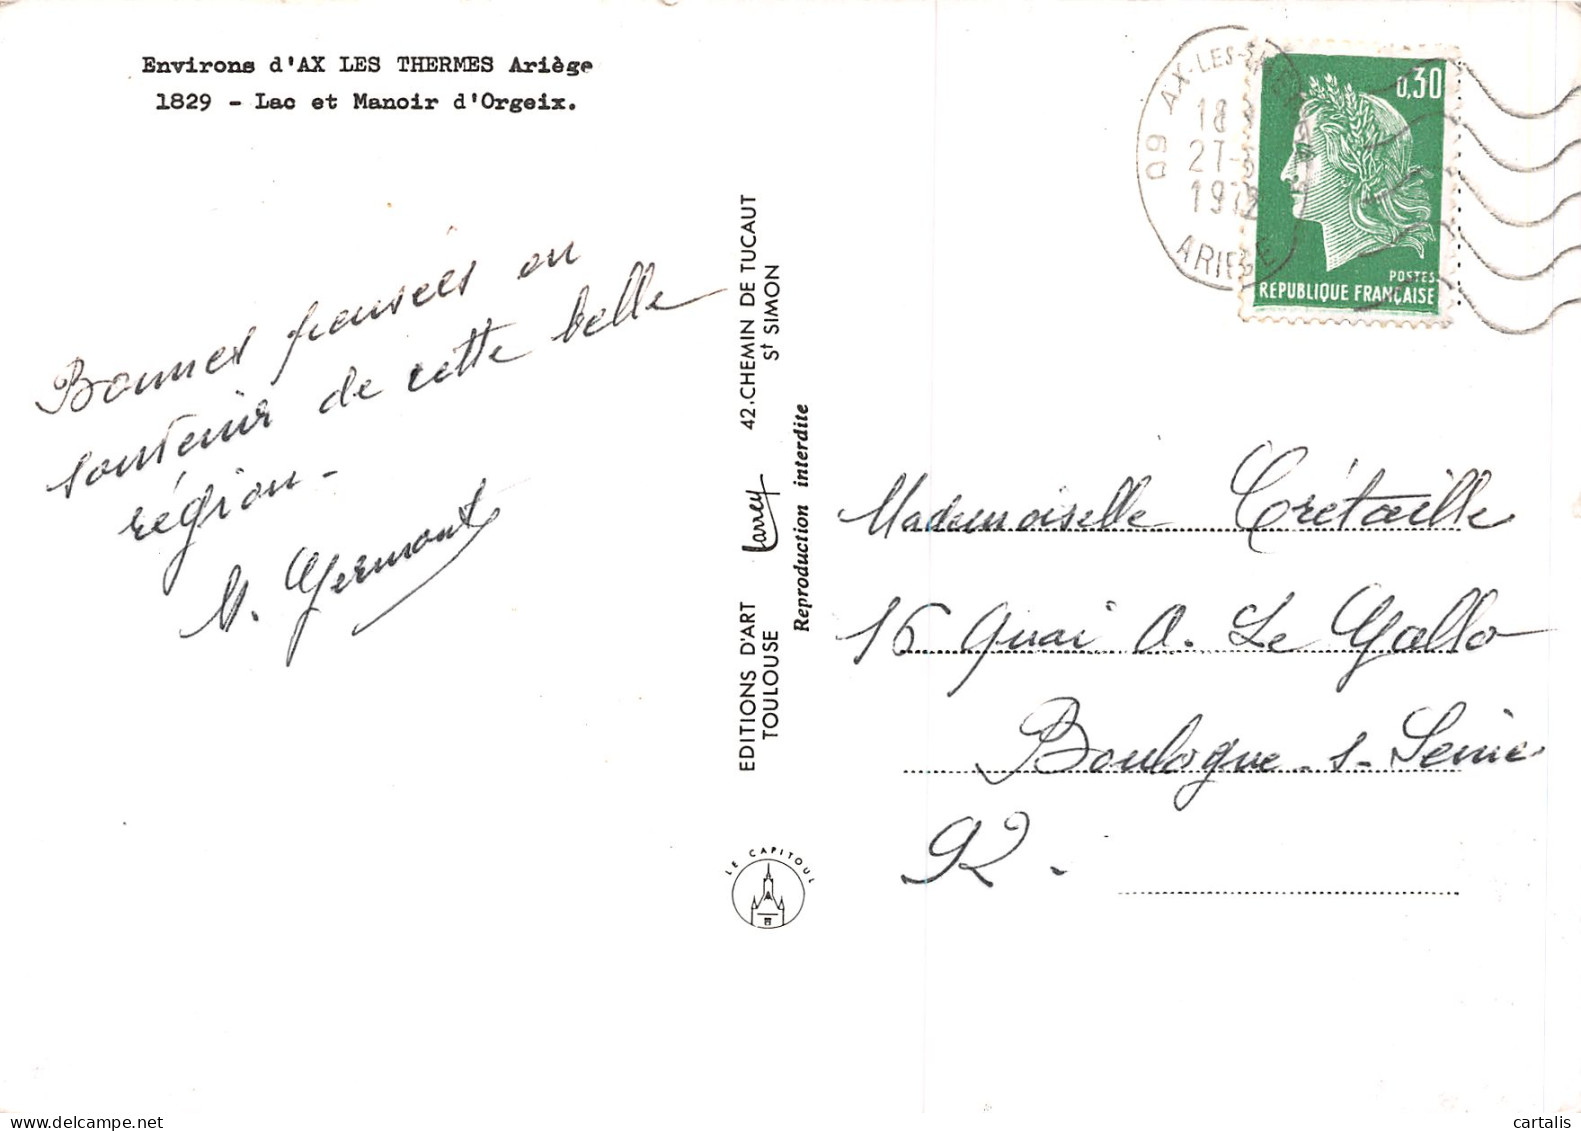 Environs d'AX LES THERMES Ariège
1829 - Lac et Manoir d'Orgeix.
Bonnes pensées en
souvenir de cette belle
région -
Germont
EDITIONS D'ART Larrey 42.CHEMIN DE TUCAUT
TOULOUSE St SIMON
Reproduction interdite
LE CAPITOUL
09 AX-LES-THERMES
18
27-
1972
ARIEGE
0,30
POSTES
REPUBLIQUE FRANÇAISE
Mademoiselle Crétaille
16 Quai A. Le Gallo
Boulogne-s-Seine
92.
cartalis
www.delcampe.net